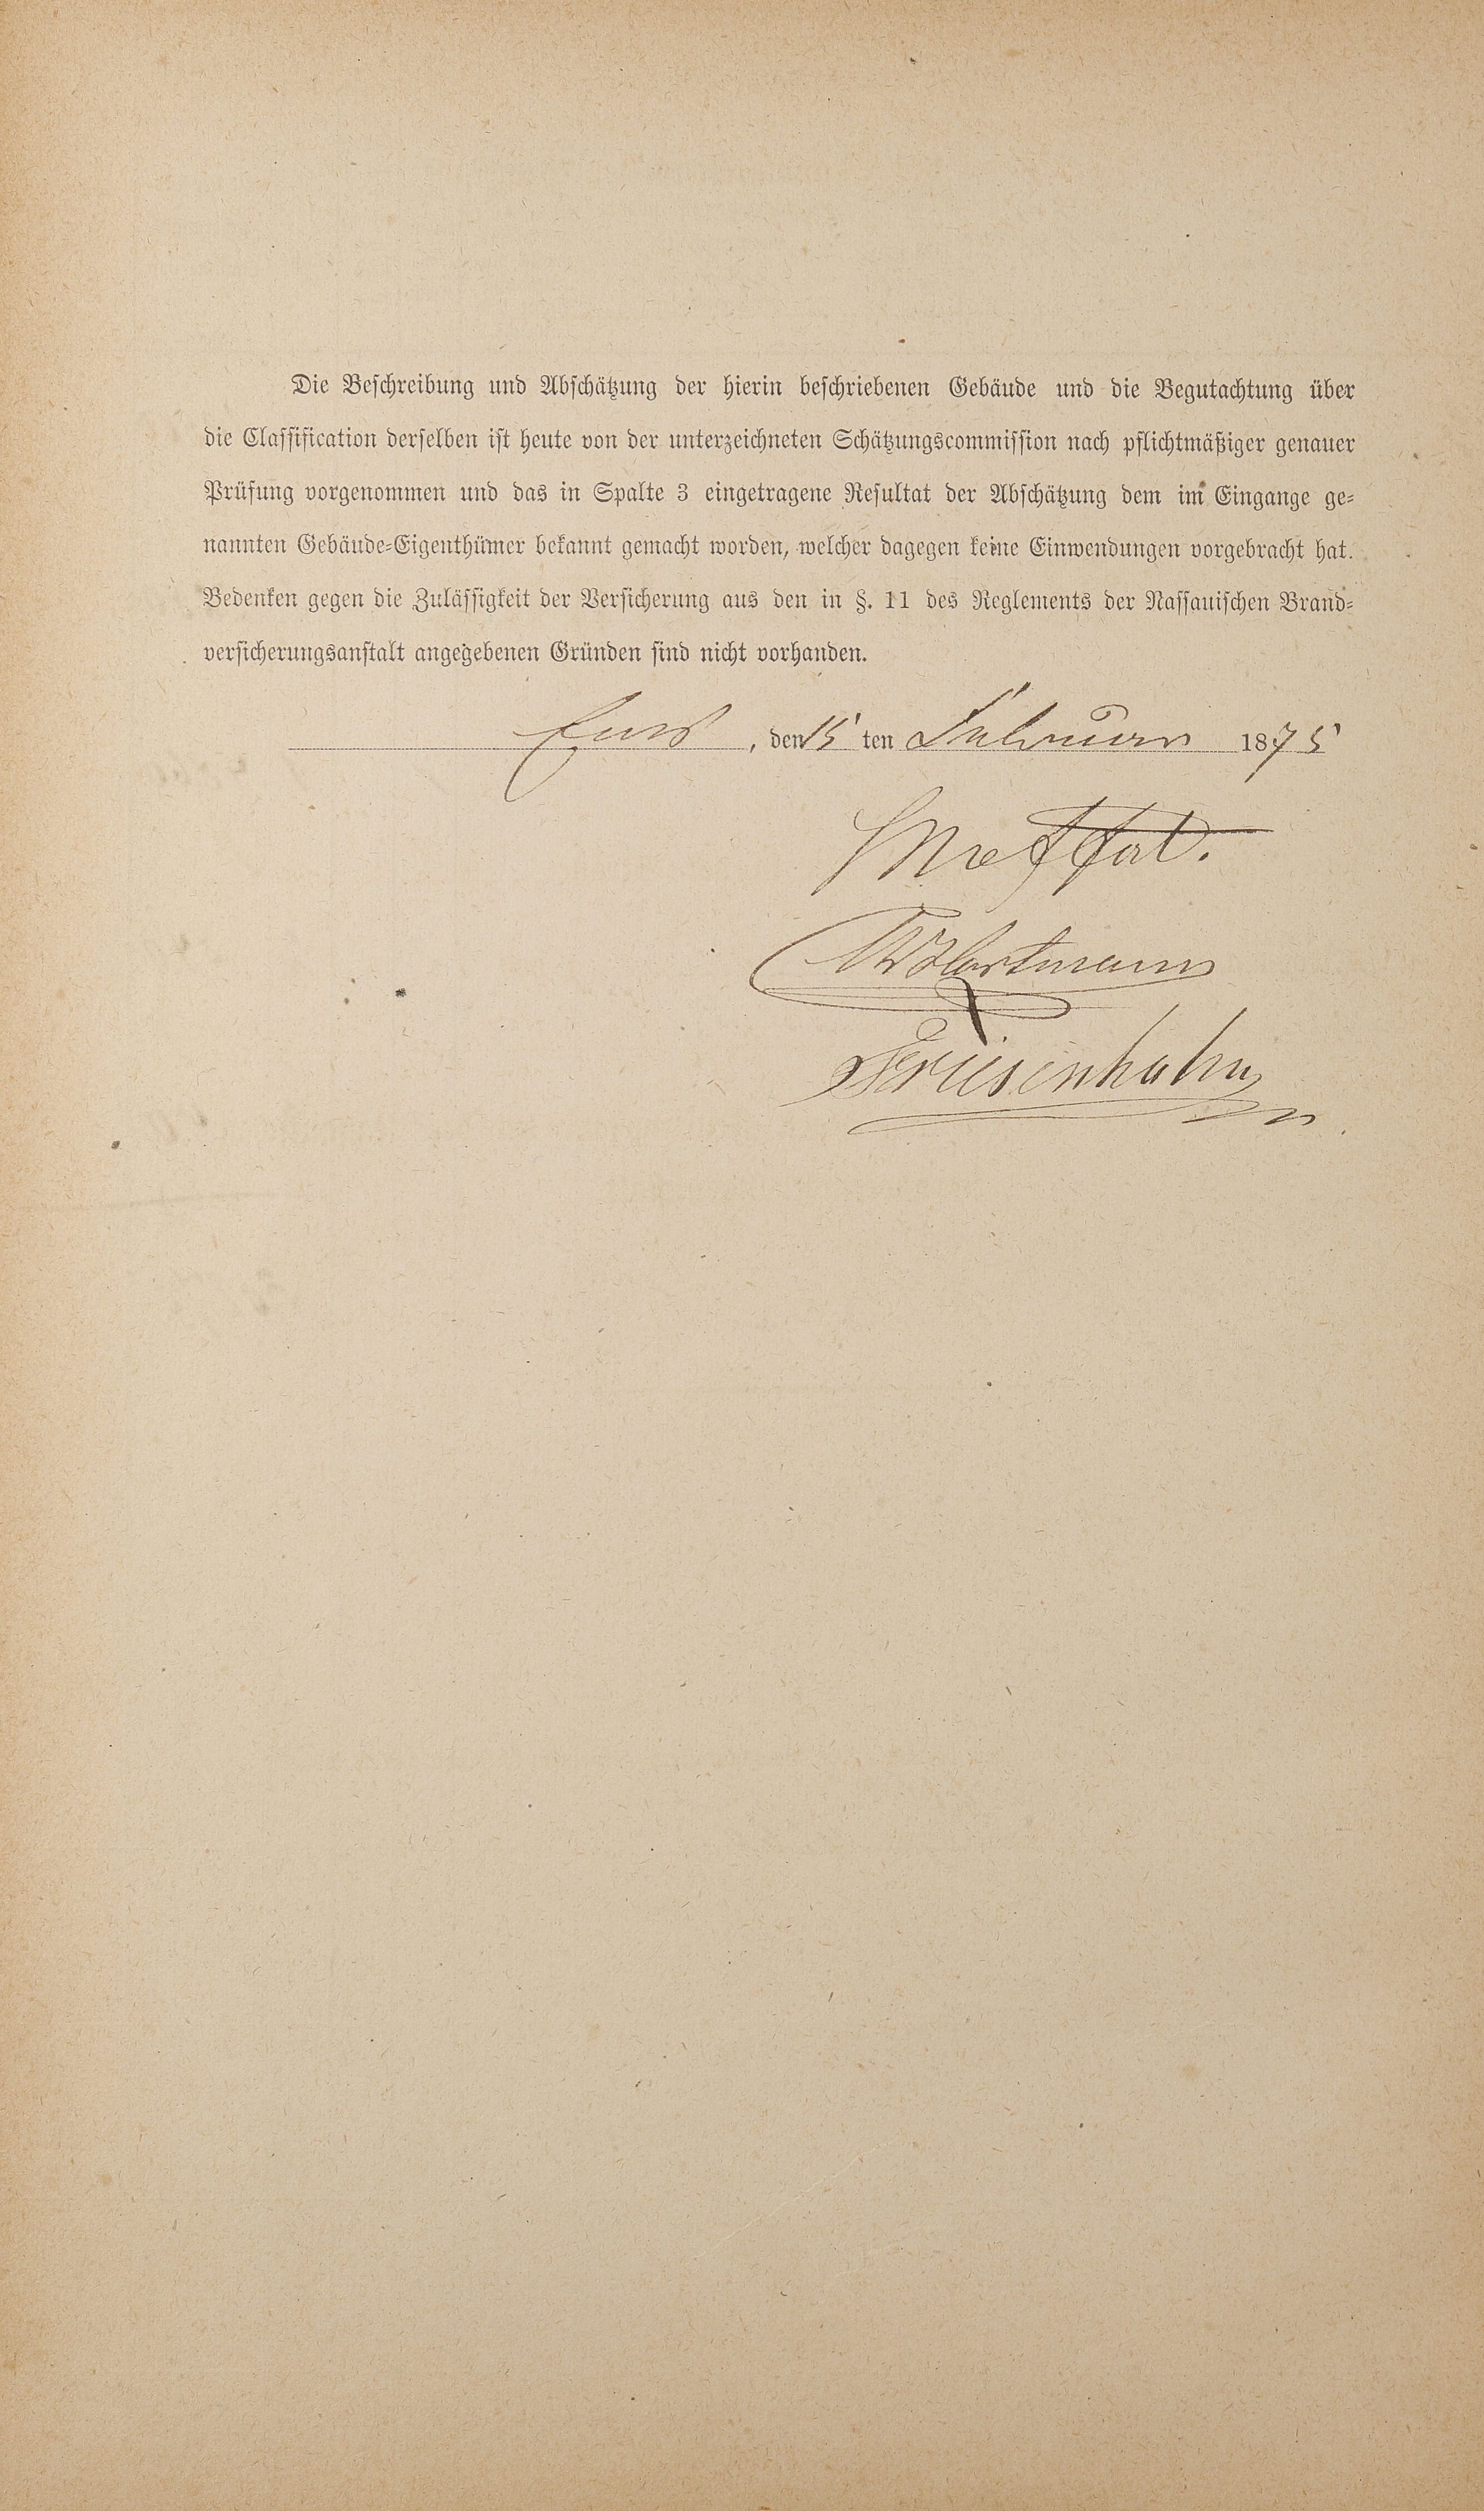 Die Beschreibung und Abschätzung der hierin beschriebenen Gebäude und die Begutachtung über
die Classification derselben ist heute von der unterzeichneten Schätzungscommission nach pflichtmäßiger genauer
Prüfung vorgenommen und das in Spalte 3 eingetragene Resultat der Abschätzung dem im Eingange ge-
nannten Gebäude-Eigenthümer bekannt gemacht worden, welcher dagegen keine Einwendungen vorgebracht hat.
Bedenken gegen die Zulässigkeit der Versicherung aus den in §. 11 des Reglements der Nassauischen Brand-
versicherungsanstalt angegebenen Gründen sind nicht vorhanden.
Ems, den 15 ten Februar 1875
Hartmann
Friesenhahn